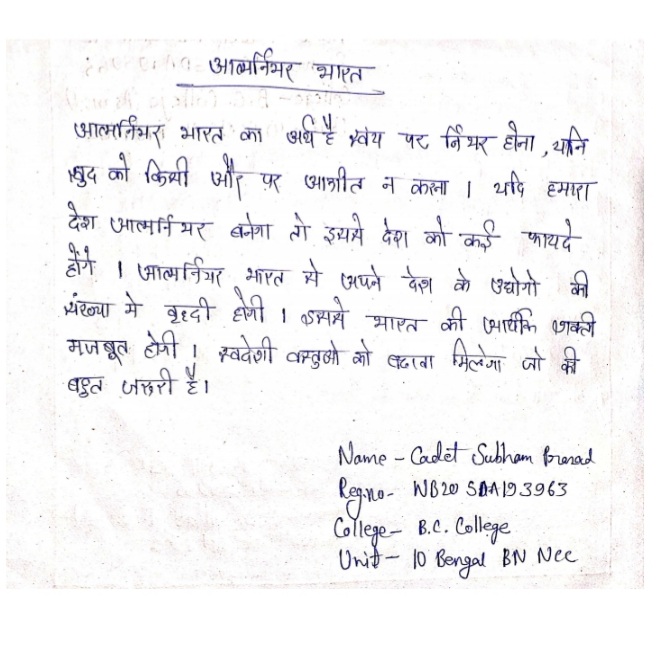 आत्मर्निभर भारत
आत्मर्निभर भारत का अर्थ है स्वंय पर र्निभर होना, यानि
खुद को किसी और पर आश्रीत न करना । यदि हमारा
देश आत्मर्निभर बनेगा तो इससे देश को कई फायदे
होंगे । आत्मर्निभर भारत से अपने देश के उद्योगो की
संख्या मे वृद्दी होगी । इससे भारत की आर्थीक शक्ती
मजबूत होगी । स्वदेशी वस्तुओ को बढावा मिलेगा जो की
बहुत जरुरी है।
Name - Cadet Subham Prasad
Reg.no- WB20 SDA193963
College- B.C. College
Unit- 10 Bengal BN Ncc